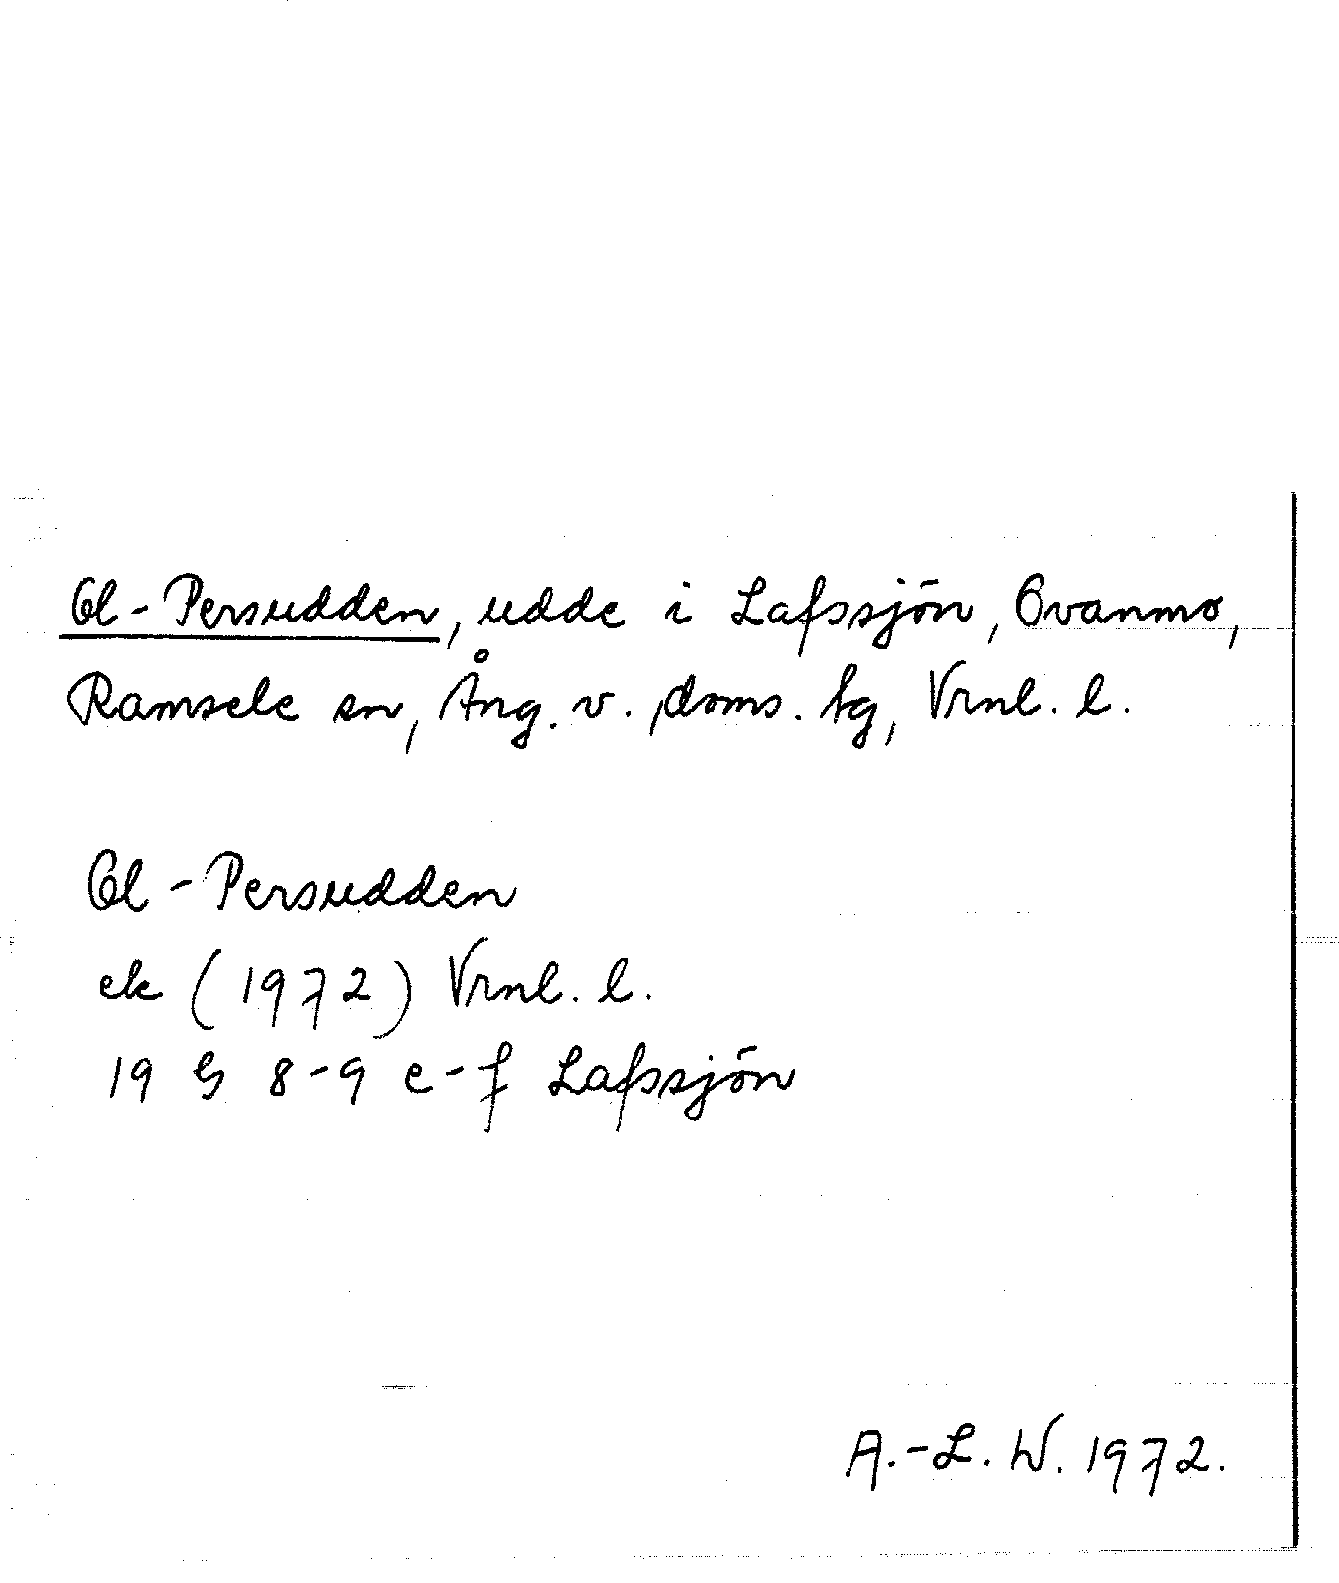 Ol-Persudden, udde i Lafssjön, Ovanmo,
Ramsele sn, Ång. v. doms. tg, Vrnl. l.
Ol-Persudden
ek (1972) Vrnl. l.
19 G 8-9 e-f Lafssjön
A.-L. W. 1972.